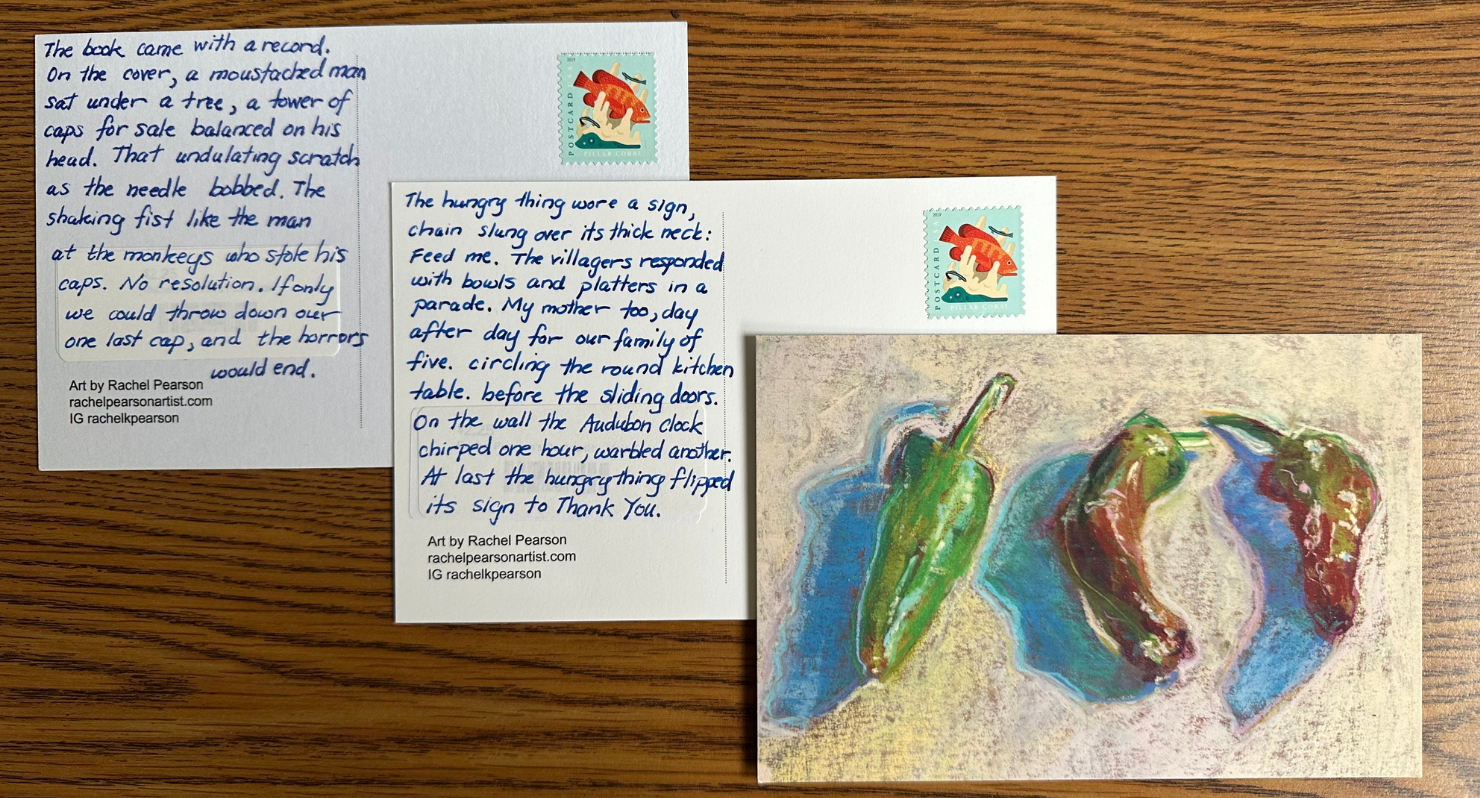 The book came with a record.
On the cover, a moustached man
sat under a tree, a tower of
caps for sale balanced on his
head. That undulating scratch
as the needle bobbed. The
shaking fist like the man
at the monkeys who stole his
caps. No resolution. If only
we could throw down our
one last cap, and the horrors
would end.
Art by Rachel Pearson
rachelpearsonartist.com
IG rachelkpearson
POSTCARD
PILLAR CORAL
The hungry thing wore a sign,
chain slung over its thick neck:
Feed me. The villagers responded
with bowls and platters in a
parade. My mother too, day
after day for our family of
five. circling the round kitchen
table. before the sliding doors.
On the wall the Audubon clock
chirped one hour, warbled another.
At last the hungry thing flipped
its sign to Thank You.
Art by Rachel Pearson
rachelpearsonartist.com
IG rachelkpearson
POSTCARD
PILLAR CORAL